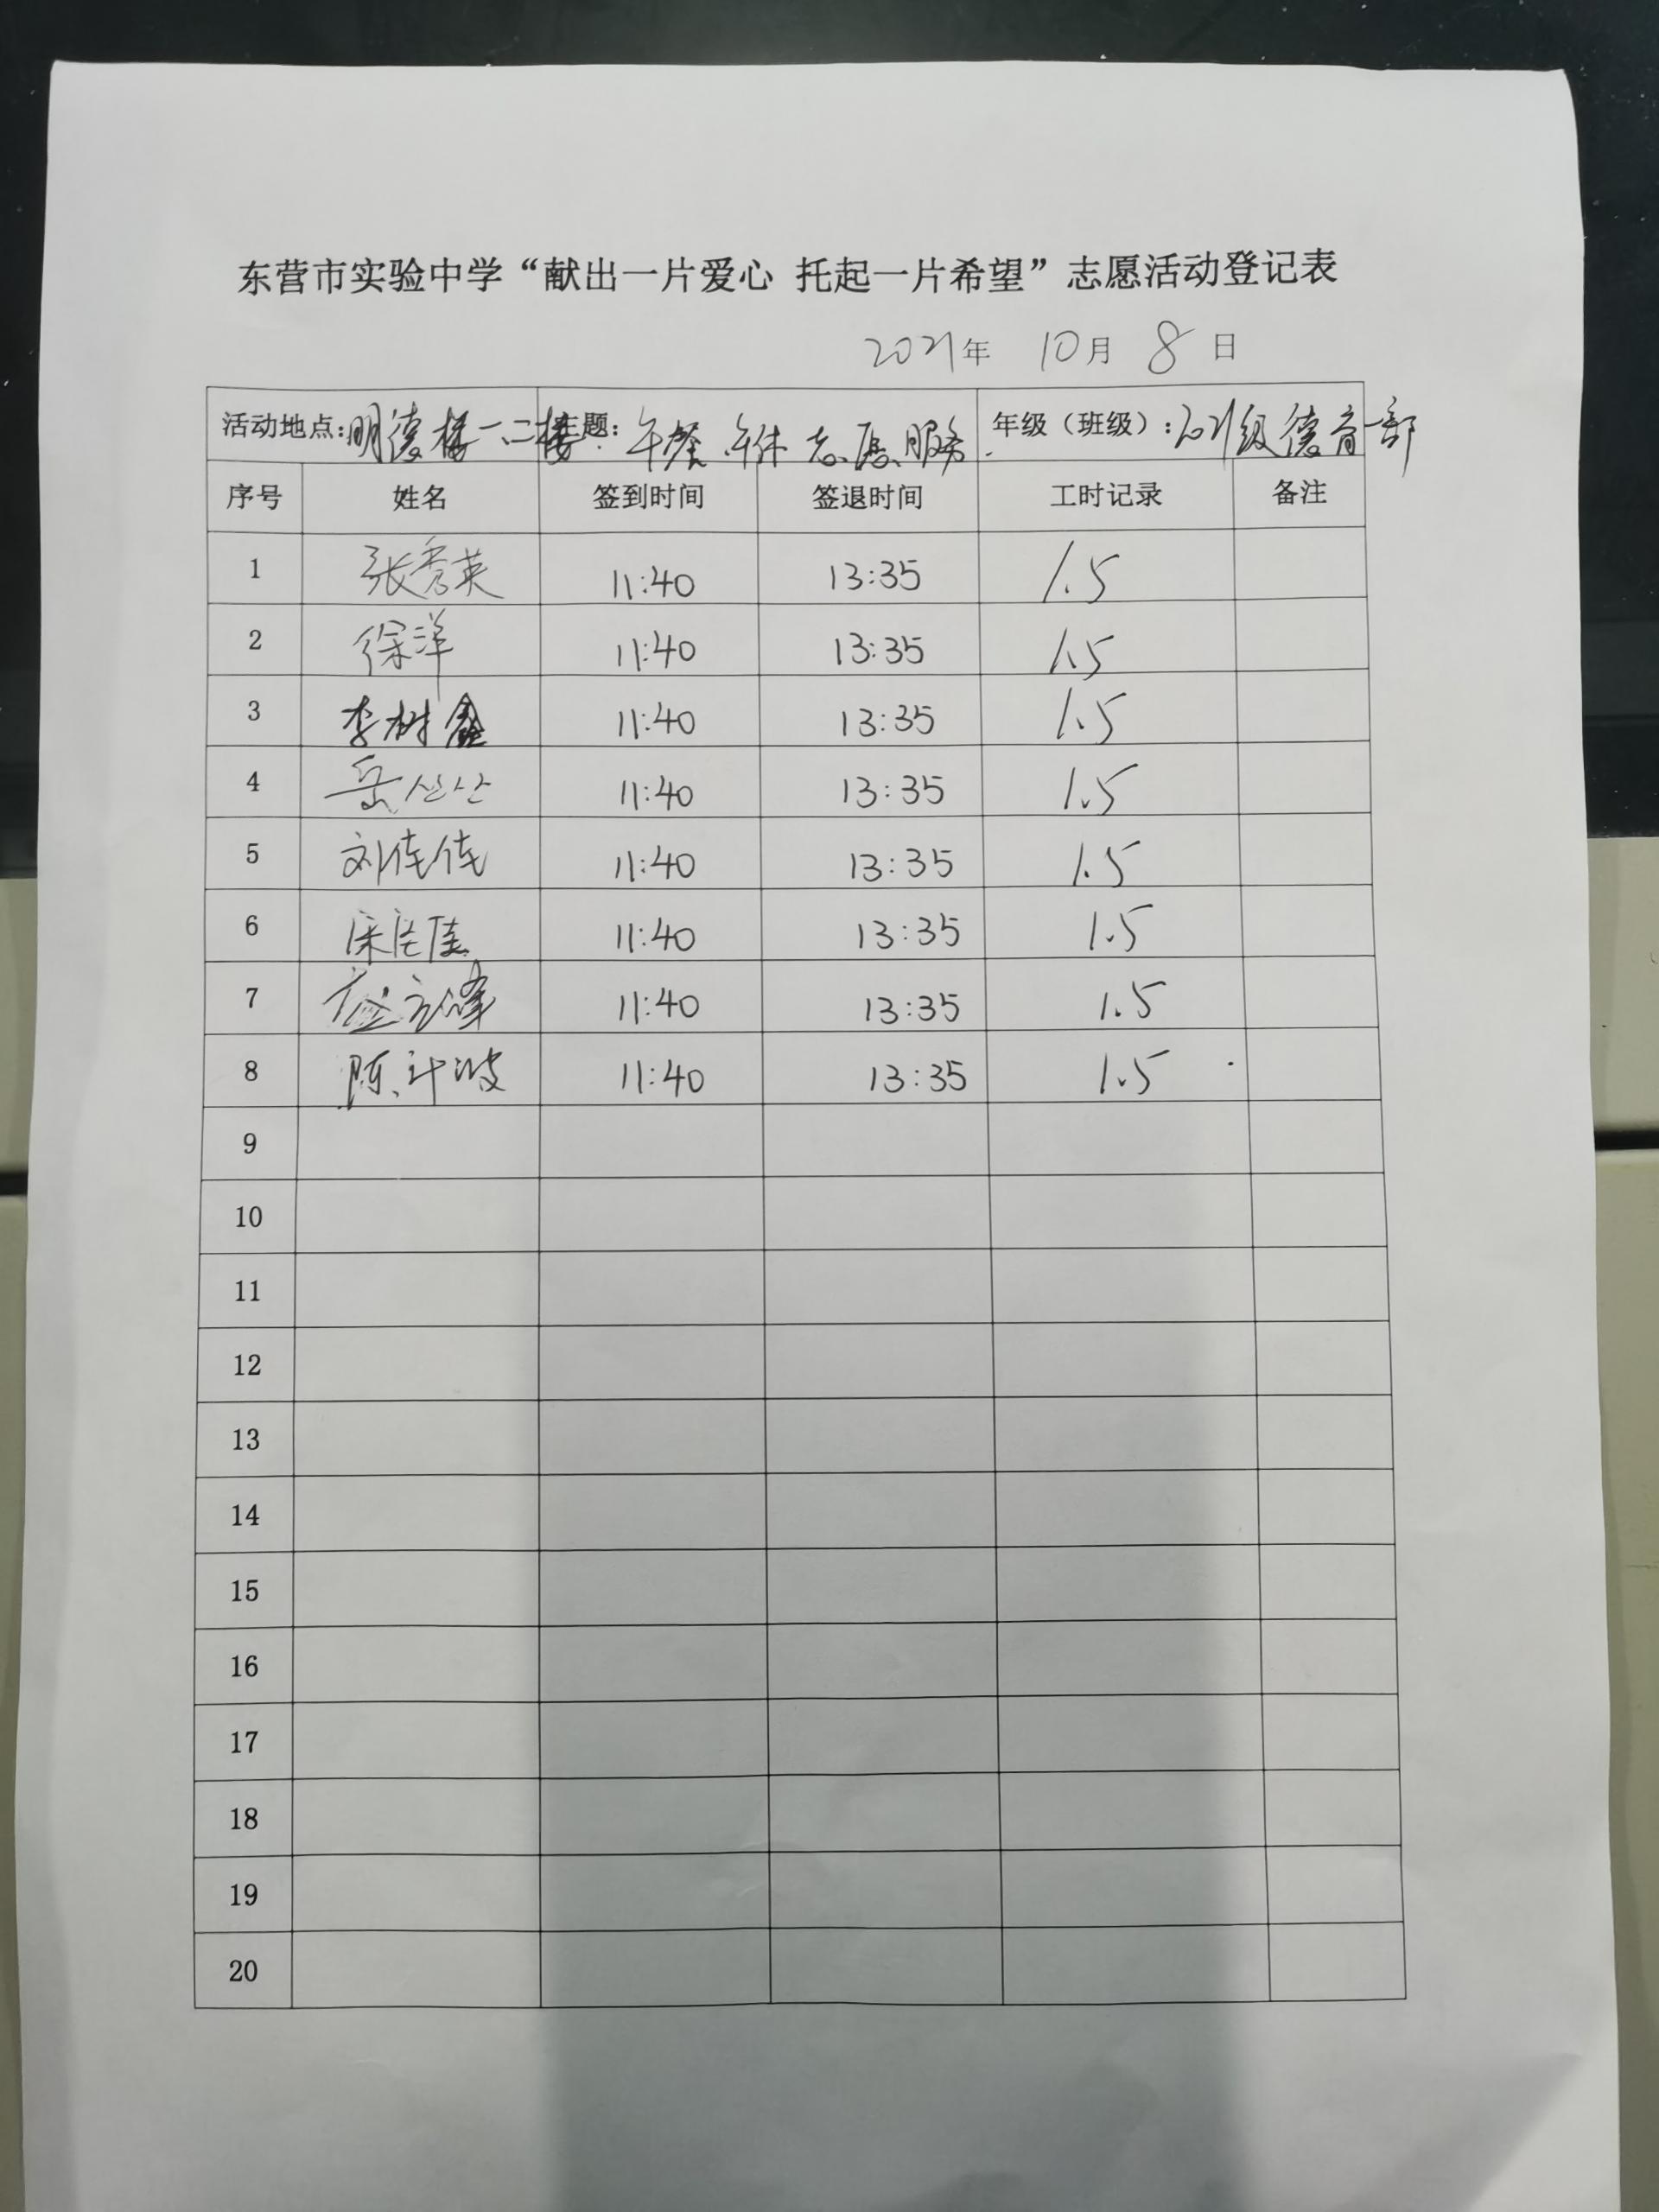 东营市实验中学“献出一片爱心 托起一片希望”志愿活动登记表
2021年 10月 8日
活动地点:明德楼一、二楼 主题:午餐午休志愿服务. 年级（班级）:2021级德育一部
序号 姓名 签到时间 签退时间 工时记录 备注
1 张秀英 11:40 13:35 1.5
2 徐洋 11:40 13:35 1.5
3 李树鑫 11:40 13:35 1.5
4 岳 11:40 13:35 1.5
5 刘佳佳 11:40 13:35 1.5
6 11:40 13:35 1.5
7 11:40 13:35 1.5
8 陈计波 11:40 13:35 1.5
9
10
11
12
13
14
15
16
17
18
19
20